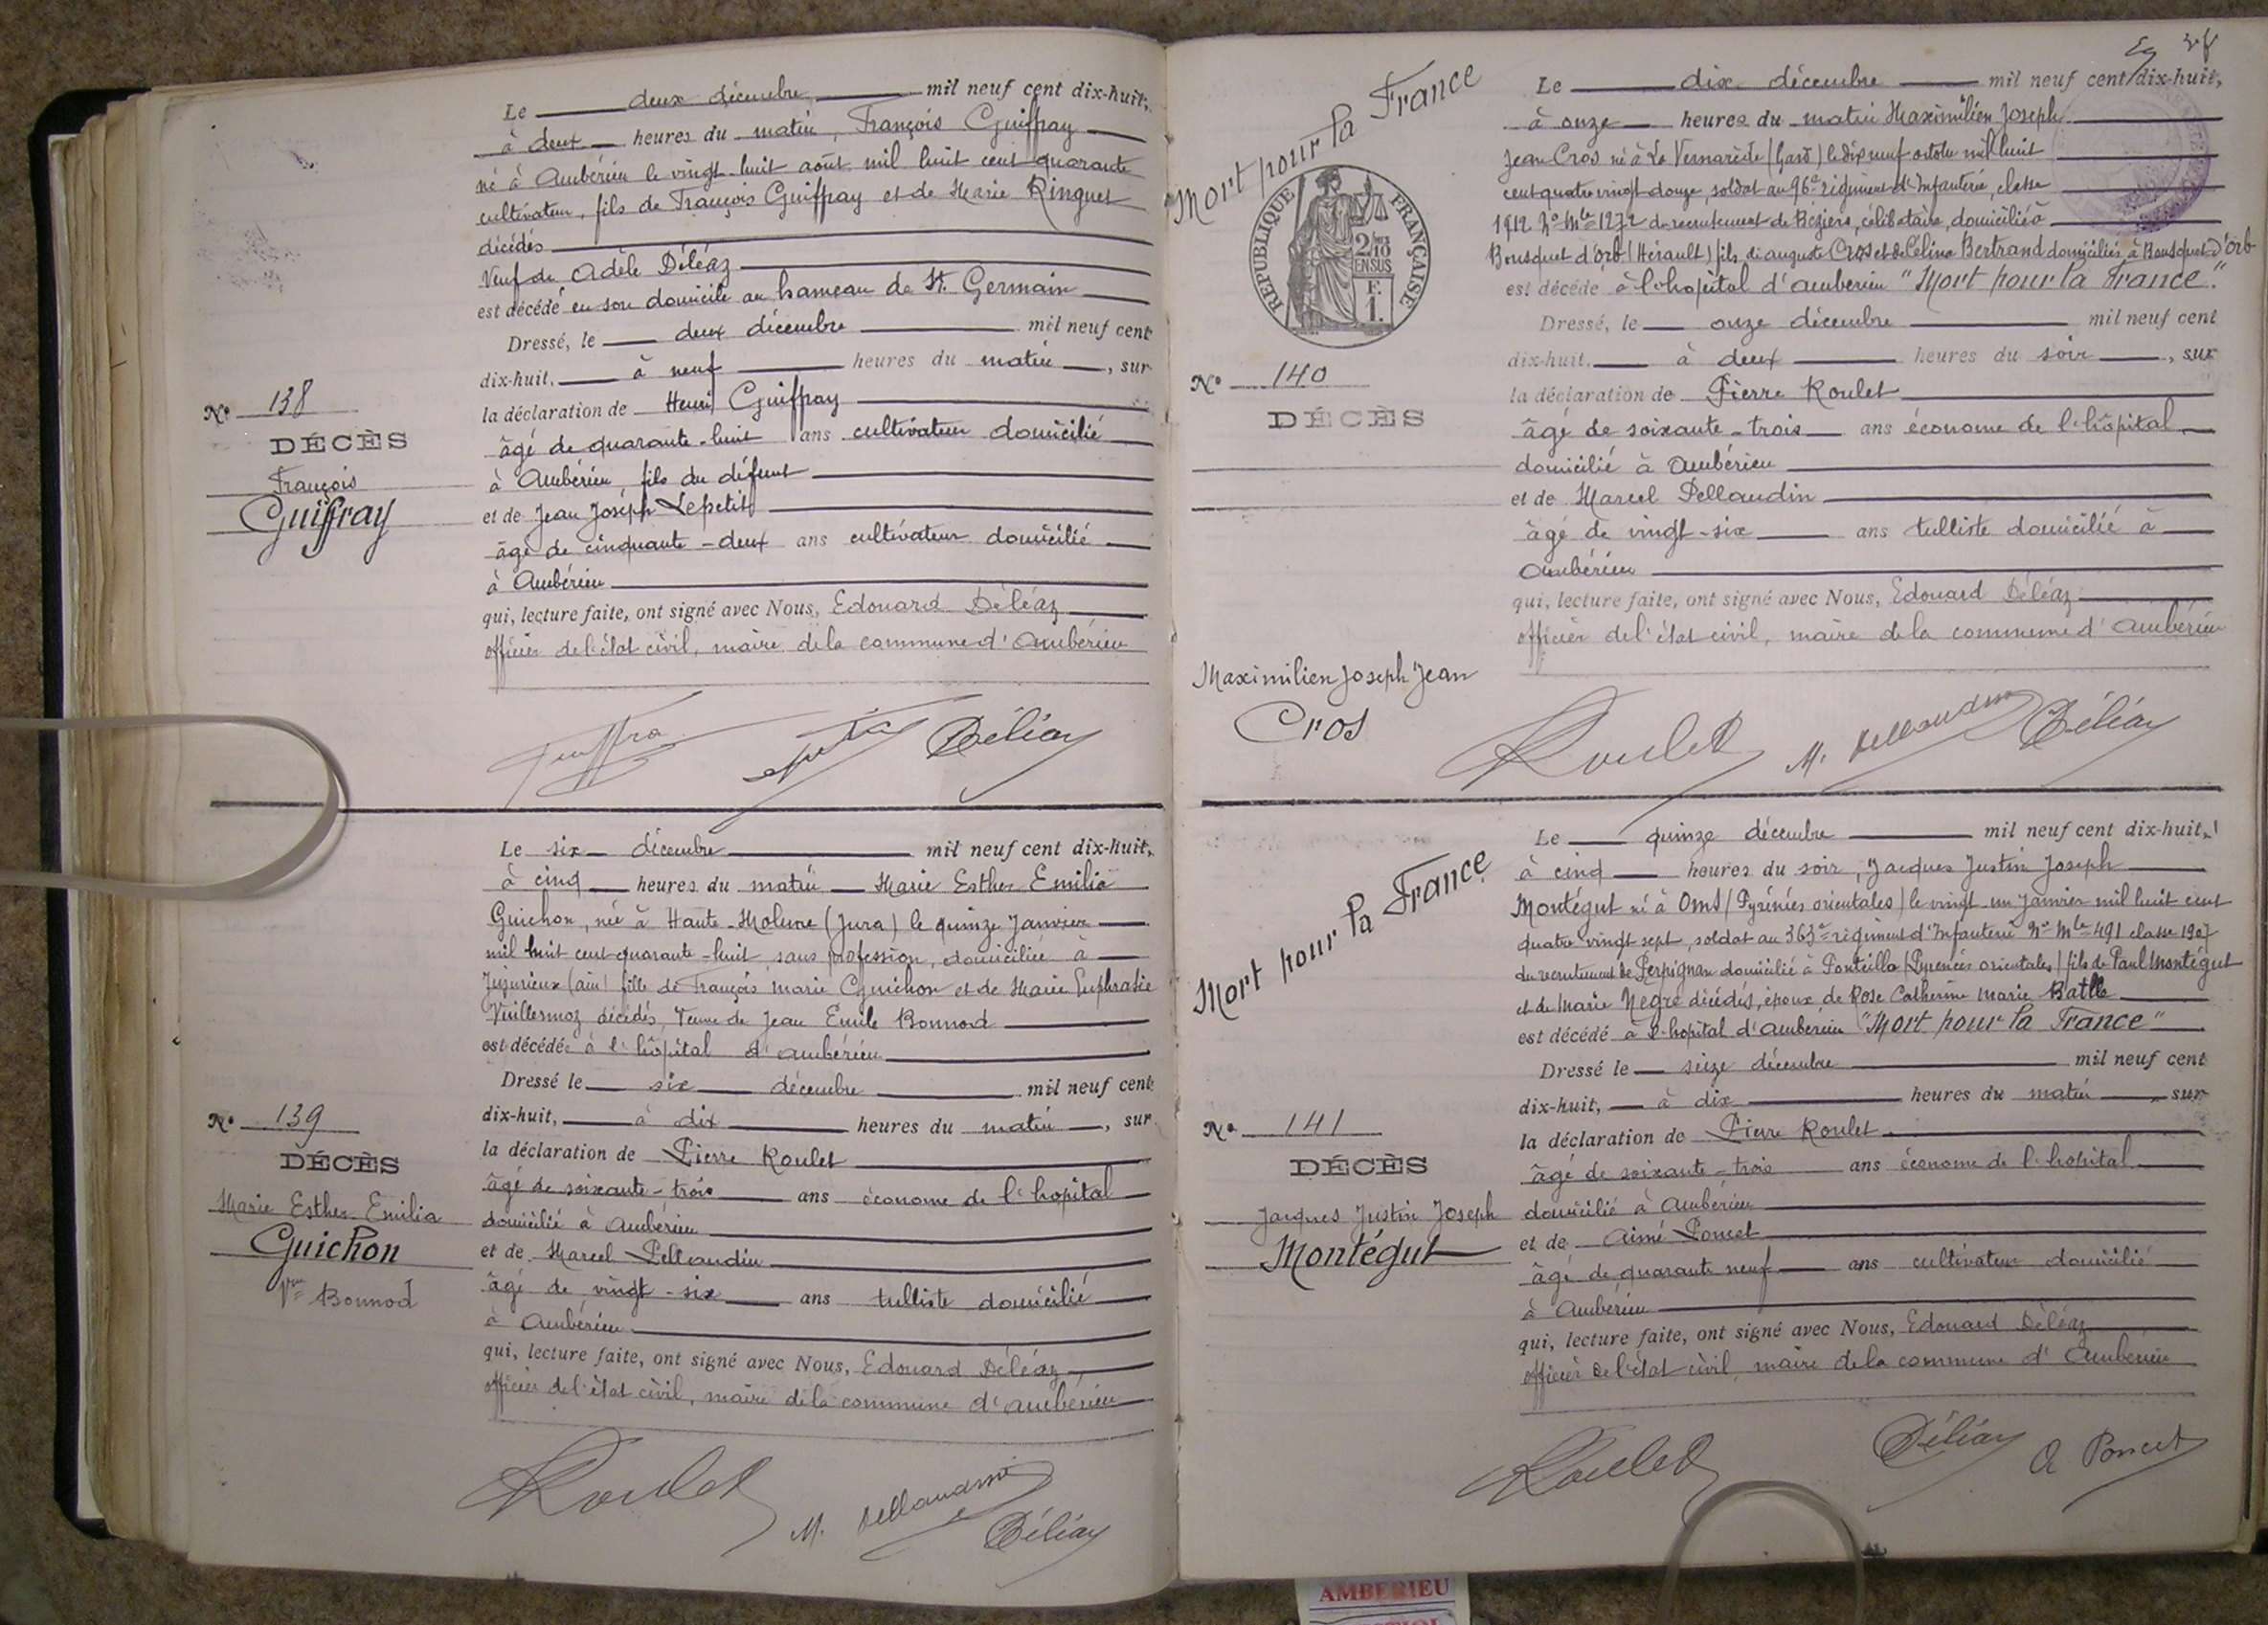 Le deux décembre mil neuf cent dix-huit,
à deux heures du matin, François Guiffray
né à Ambérieu le vingt-huit août mil huit cent quarante
cultivateur, fils de François Guiffray et de Marie Ringuet
décédés
Veuf de Adèle Déléaz
est décédé en son domicile au hameau de St. Germain
Dressé, le deux décembre mil neuf cent
dix-huit, à neuf heures du matin, sur
la déclaration de Henri Guiffray
âgé de quarante-huit ans cultivateur domicilié
à Ambérieu, fils du défunt
et de Jean Joseph Lepetit
âgé de cinquante-deux ans cultivateur domicilié
à Ambérieu
qui, lecture faite, ont signé avec Nous, Edouard Déléaz
officier de l'état civil, maire de la commune d'Ambérieu
N° 138
DÉCÈS
François
Guiffray
Déléaz
Le six décembre mil neuf cent dix-huit,
à cinq heures du matin Marie Esther Emilia
Guichon, née à Haute-Molune (Jura) le quinze Janvier
mil huit cent quarante-huit, sans profession, domiciliée à
Jujurieux (ain) fille de François Marie Guichon et de Marie Euphrasie
Vuillermoz décédés, Veuve de Jean Emile Bonnod
est décédée à l'hôpital d'ambérieu
Dressé le six décembre mil neuf cent
dix-huit, à dix heures du matin, sur
la déclaration de Pierre Roulet
âgé de soixante-trois ans économe de l'hopital
domicilié à Ambérieu
et de Marcel Pellaudin
âgé de vingt-six ans tulliste domicilié
à Ambérieu
qui, lecture faite, ont signé avec Nous, Edouard Déléaz
officier de l'état civil, maire de la commune d'ambérieu
N° 139
DÉCÈS
Marie Esther Emilia
Guichon
Vve Bonnod
Roulet
M. Pellaudin
Déléaz
Mort pour la France
RÉPUBLIQUE FRANÇAISE
2/10
EN SUS
F.
1.
Le dix décembre mil neuf cent dix-huit,
à onze heures du matin Maximilien Joseph
Jean Cros né à La Vernarède (Gard) le dix neuf octobre mil huit
cent quatre vingt douze, soldat au 96e régiment d'Infanterie, classe
1912 No Mle 1272 du recrutement de Béziers, célibataire, domicilié à
Bousquet d'Orb (Hérault) fils de auguste Cros et de Célina Bertrand domiciliés à Bousquet d'Orb
est décédé à l'hopital d'ambérieu "Mort pour la France".
Dressé, le onze décembre mil neuf cent
dix-huit, à deux heures du soir, sur
la déclaration de Pierre Roulet
âgé de soixante-trois ans économe de l'hôpital
domicilié à Ambérieu
et de Marcel Pellaudin
âgé de vingt-six ans tulliste domicilié à
Ambérieu
qui, lecture faite, ont signé avec Nous, Edouard Déléaz
officier de l'état civil, maire de la commune d'Ambérieu
N° 140
DÉCÈS
Maximilien Joseph Jean
Cros
Roulet
M. Pellaudin
Déléaz
Mort pour la France
Le quinze décembre mil neuf cent dix-huit,
à cinq heures du soir, Jacques Justin Joseph
Montégut né à Oms (Pyrénées orientales) le vingt-un Janvier mil huit cent
quatre vingt sept, soldat au 363e régiment d'Infanterie No Mle 491 classe 1907
du recrutement de Perpignan domicilié à Ponteilla (Pyrénées orientales) fils de Paul Montégut
et de Marie Negre décédés, époux de Rose Catherine Marie Batlle
est décédé à l'hopital d'ambérieu "Mort pour la France"
Dressé le seize décembre mil neuf cent
dix-huit, à dix heures du matin, sur
la déclaration de Pierre Roulet
âgé de soixante-trois ans économe de l'hopital
domicilié à Ambérieu
et de Aimé Poncet
âgé de quarante neuf ans cultivateur domicilié
à Ambérieu
qui, lecture faite, ont signé avec Nous, Edouard Déléaz
officier de l'état civil, maire de la commune d'Ambérieu
N° 141
DÉCÈS
Jacques Justin Joseph
Montégut
Roulet
Déléaz
A Poncet
AMBERIEU